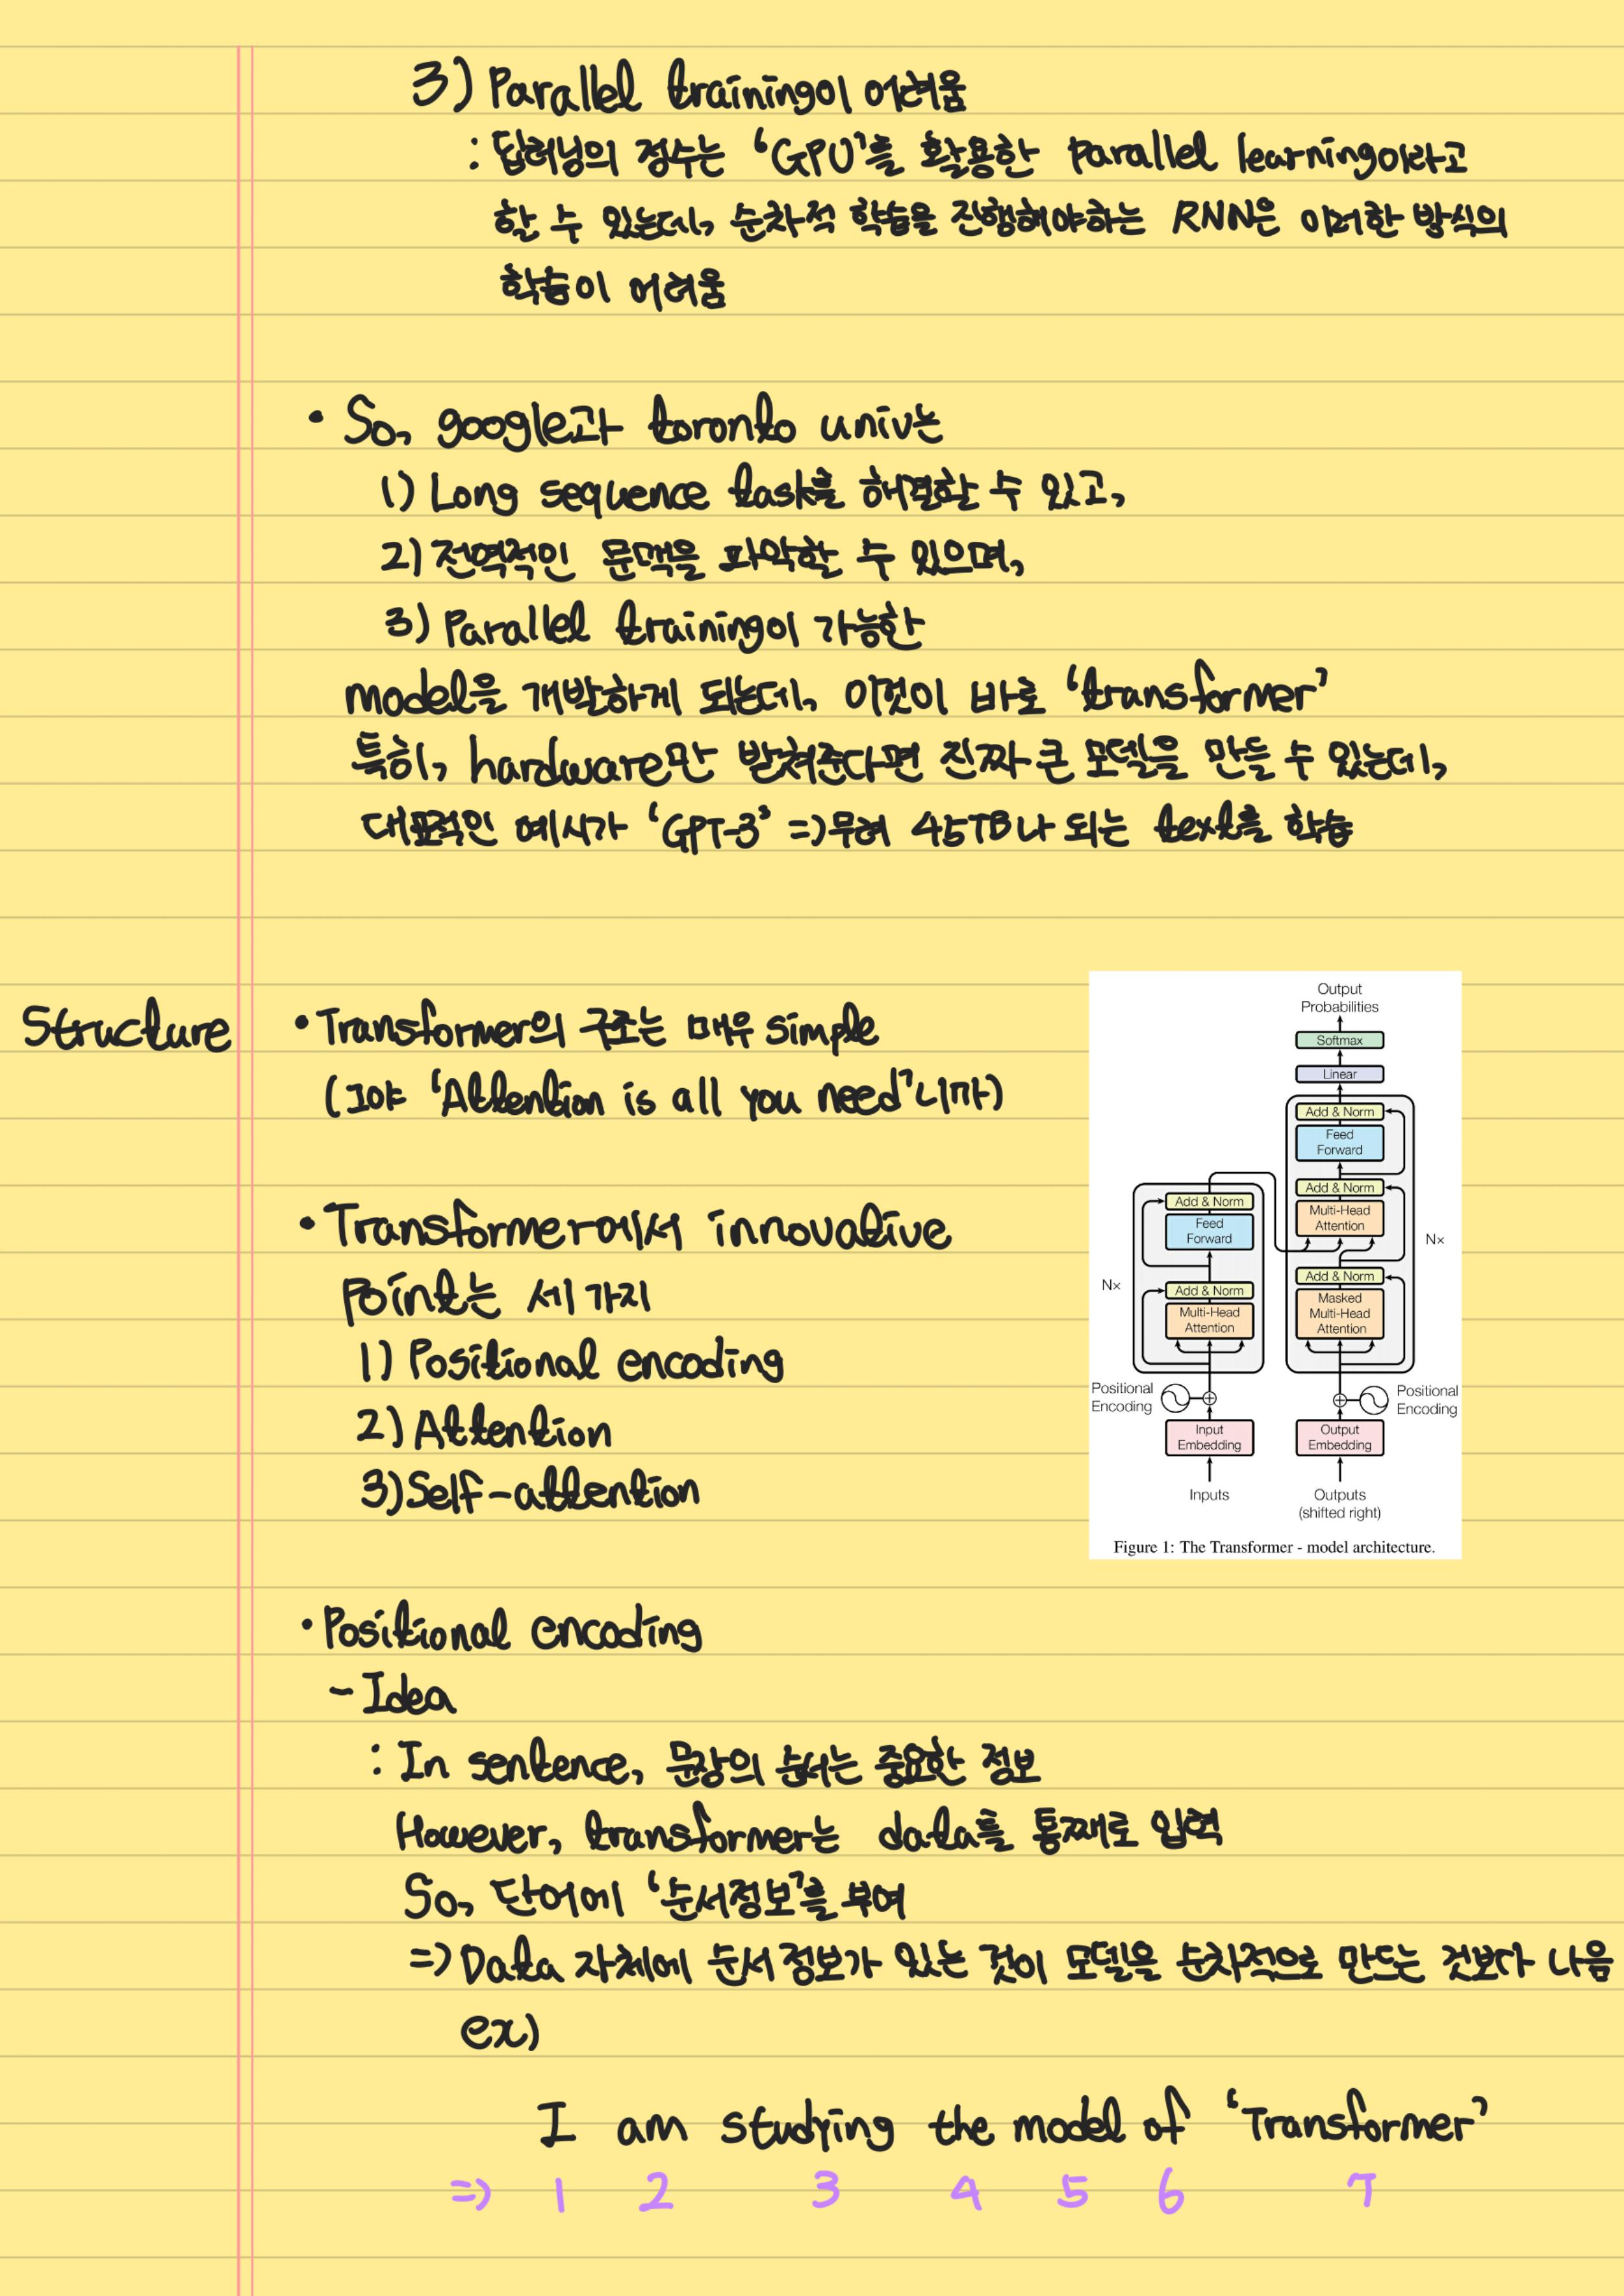 3) Parallel training이 어려움
: 딥러닝의 정수는 'GPU'를 활용한 parallel learning이라고
할 수 있는데, 순차적 학습을 진행해야하는 RNN은 이러한 방식의
학습이 어려움
• So, google과 toronto univ는
1) Long sequence task를 해결할 수 있고,
2) 전역적인 문맥을 파악할 수 있으며,
3) Parallel training이 가능한
model을 개발하게 되는데, 이것이 바로 'transformer'
특히, hardware만 받쳐준다면 진짜 큰 모델을 만들 수 있는데,
대표적인 예시가 'GPT-3' => 무려 45TB나 되는 text를 학습
Structure
• Transformer의 구조는 매우 simple
(그야 'Attention is all you need'니까)
• Transformer에서 innovative
point는 세 가지
1) Positional encoding
2) Attention
3) Self-attention
Output
Probabilities
Softmax
Linear
Add & Norm
Feed
Forward
Add & Norm
Multi-Head
Attention
Nx
Add & Norm
Masked
Multi-Head
Attention
Add & Norm
Feed
Forward
Nx
Add & Norm
Multi-Head
Attention
Positional
Encoding
Positional
Encoding
Input
Embedding
Output
Embedding
Inputs
Outputs
(shifted right)
Figure 1: The Transformer - model architecture.
• Positional encoding
- Idea
: In sentence, 문장의 순서는 중요한 정보
However, transformer는 data를 통째로 입력
So, 단어에 '순서정보'를 부여
=> Data 자체에 순서 정보가 있는 것이 모델을 순차적으로 만드는 것보다 나음
ex)
I am studying the model of 'Transformer'
=> 1 2 3 4 5 6 7